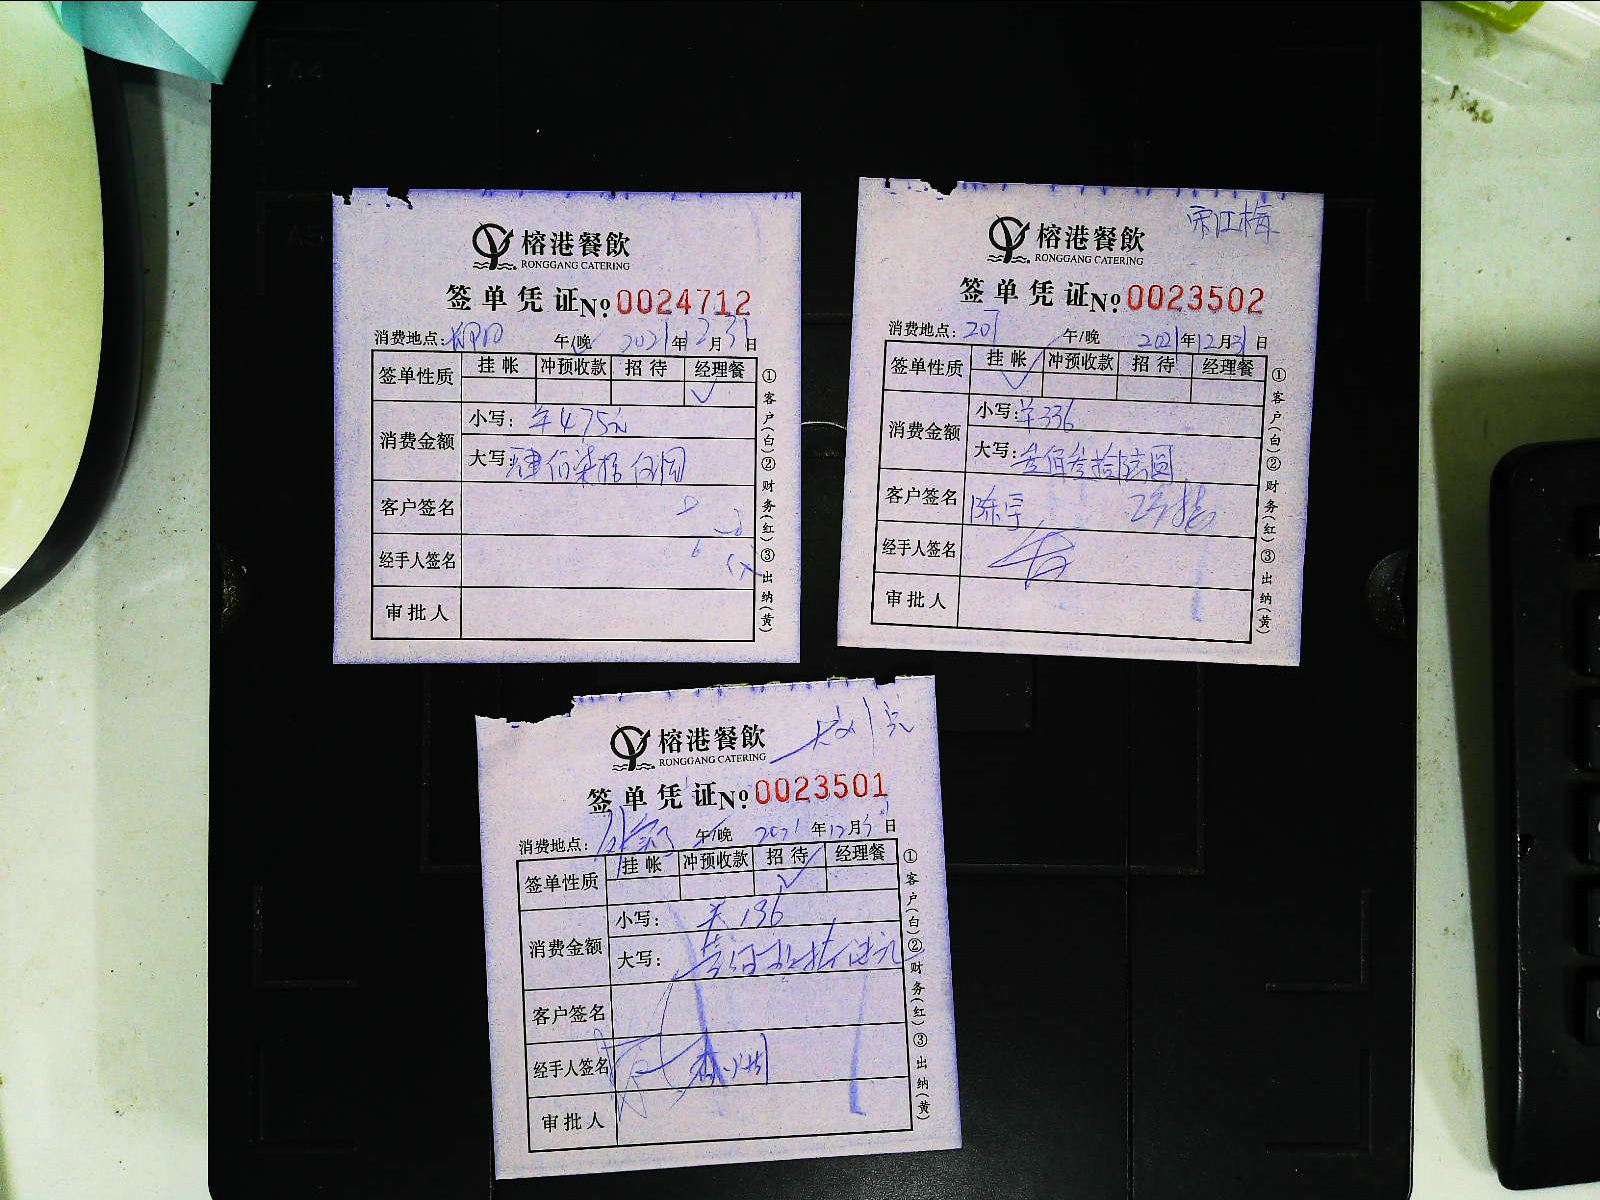 榕港餐飲
RONGGANG CATERING
签单凭证 No 0024712
消费地点: 午/晚 2021年12月31日
签单性质 挂帐 冲预收款 招待 经理餐
消费金额
小写: 475元
大写: 肆佰柒拾伍圆
客户签名
经手人签名
审批人
①客户(白)②财务(红)③出纳(黄)
宋江梅
榕港餐飲
RONGGANG CATERING
签单凭证 No 0023502
消费地点: 207 午/晚 2021年12月31日
签单性质 挂帐 冲预收款 招待 经理餐
消费金额
小写: 336
大写: 叁佰叁拾陆圆
客户签名 陈宇
经手人签名
审批人
①客户(白)②财务(红)③出纳(黄)
榕港餐飲
RONGGANG CATERING
签单凭证 No 0023501
消费地点: 午/晚 2021年12月31日
签单性质 挂帐 冲预收款 招待 经理餐
消费金额
小写: 196
大写:
客户签名
经手人签名
审批人
①客户(白)②财务(红)③出纳(黄)